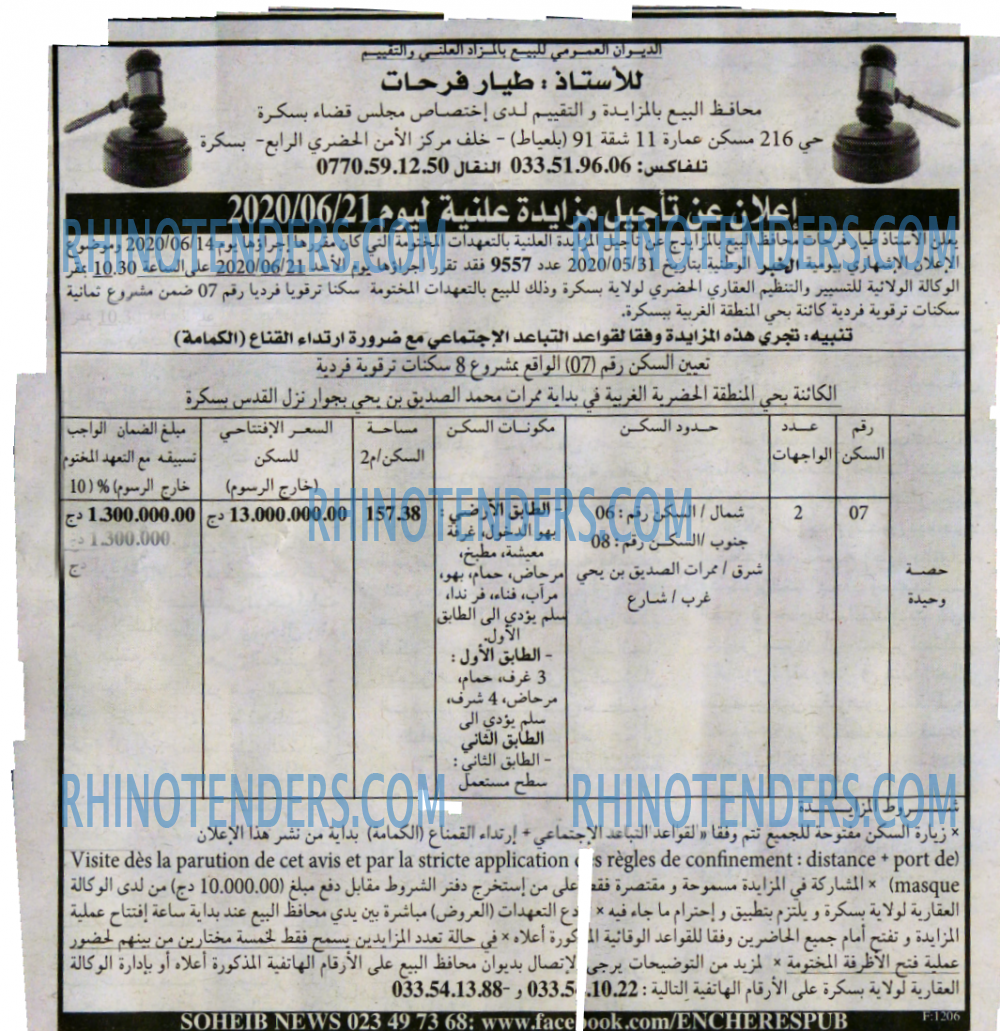 الديوان العمومي للبيع بالمزاد العلني والتقييم
للأستاذ : طيار فرحات
محافظ البيع بالمزايدة و التقييم لدى إختصاص مجلس قضاء بسكرة
حي 216 مسكن عمارة 11 شقة 91 (بلعياط) - خلف مركز الأمن الحضري الرابع- بسكرة
تلفاكس: 033.51.96.06 النقال 0770.59.12.50
إعلان عن تأجيل مزايدة علنية ليوم 2020/06/21
يعلن الأستاذ طيار فرحات محافظ البيع بالمزايدج عن تأجيل المزايدة العلنية بالتعهدات المختومة التي كان مقررا إجراؤها يوم 2020/06/14 وموضوع
الإعلان الإشهاري بيومية الخبر الوطنية بتاريخ 2020/05/31 عدد 9557 فقد تقرر إجراؤها يوم الأحد 2020/06/21 على الساعة 10.30 بمقر
الوكالة الولائية للتسيير والتنظيم العقاري الحضري لولاية بسكرة وذلك للبيع بالتعهدات المختومة سكنا ترقويا فرديا رقم 07 ضمن مشروع ثمانية
سكنات ترقوية فردية كائنة بحي المنطقة الغربية ببسكرة.
تنبيه: تجري هذه المزايدة وفقا لقواعد التباعد الإجتماعي مع ضرورة ارتداء القناع (الكمامة)
تعين السكن رقم (07) الواقع بمشروع 8 سكنات ترقوية فردية
الكائنة بحي المنطقة الحضرية الغربية في بداية ممرات محمد الصديق بن يحي بجوار نزل القدس بسكرة
رقم السكن
عدد الواجهات
حدود السكن
مكونات السكن
مساحة السكن/م2
السعر الإفتتاحي للسكن (خارج الرسوم)
مبلغ الضمان الواجب تسبيقه مع التعهد المختوم خارج الرسوم) % (10
حصة وحيدة
07
2
شمال / السكن رقم : 06
جنوب /السكن رقم : 08
شرق / ممرات الصديق بن يحي
غرب / شارع
- الطابق الأرضي :
بهو الدخول، غرفة
معيشة، مطبخ،
مرحاض، حمام، بهو،
مرآب، فناء، فرندا،
سلم يؤدي الى الطابق
الأول.
- الطابق الأول :
3 غرف، حمام،
مرحاض، 4 شرف،
سلم يؤدي الى
الطابق الثاني
- الطابق الثاني :
سطح مستعمل
157.38
13.000.000.00 دج
1.300.000.00 دج
شروط المزايدة
× زيارة السكن مفتوحة للجميع تتم وفقا «لقواعد التباعد الإجتماعي + إرتداء القمناع (الكمامة) بداية من نشر هذا الإعلان
Visite dès la parution de cet avis et par la stricte application des règles de confinement : distance + port de)
masque) × المشاركة في المزايدة مسموحة و مقتصرة فقط على من إستخرج دفتر الشروط مقابل دفع مبلغ (10.000.00 دج) من لدى الوكالة
العقارية لولاية بسكرة و يلتزم بتطبيق و إحترام ما جاء فيه × دع التعهدات (العروض) مباشرة بين يدي محافظ البيع عند بداية ساعة إفتتاح عملية
المزايدة و تفتح أمام جميع الحاضرين وفقا للقواعد الوقائية المذكورة أعلاه × في حالة تعدد المزايدين يسمح فقط لخمسة مختارين من بينهم لحضور
عملية فتح الأظرفة المختومة × لمزيد من التوضيحات يرجى الإتصال بديوان محافظ البيع على الأرقام الهاتفية المذكورة أعلاه أو بإدارة الوكالة
العقارية لولاية بسكرة على الأرقام الهاتفية التالية : 033.54.10.22 و -033.54.13.88
SOHEIB NEWS 023 49 73 68: www.facebook.com/ENCHERESPUB
F:1206
RHINOTENDERS.COM
RHINOTENDERS.COM
RHINOTENDERS.COM
RHINOTENDERS.COM
RHINOTENDERS.COM